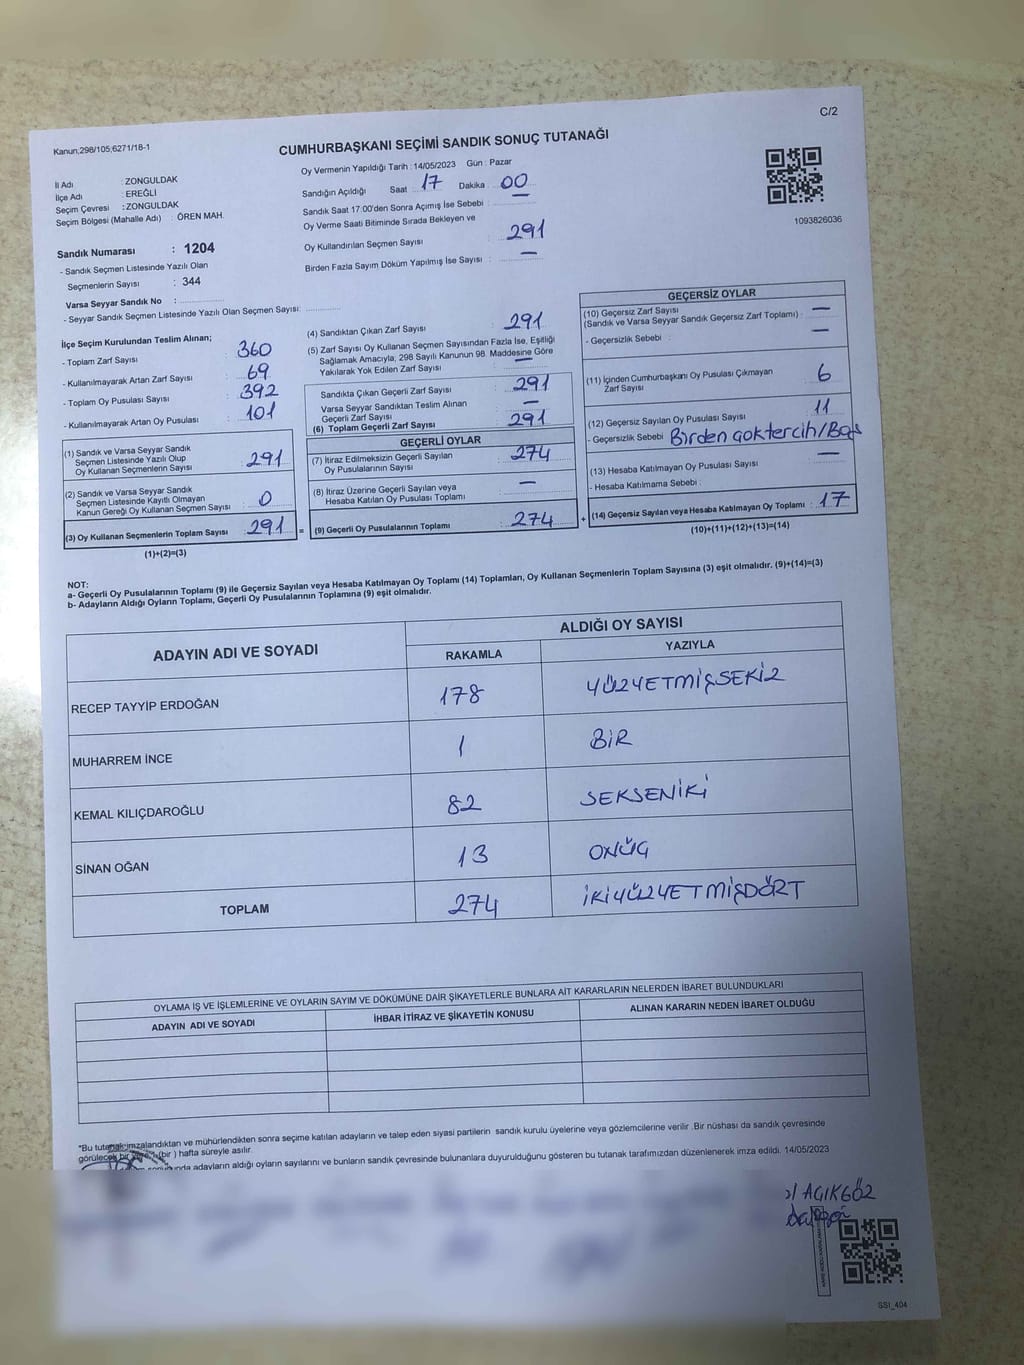 C/2
Kanun;298/105;6271/18-1
CUMHURBAŞKANI SEÇİMİ SANDIK SONUÇ TUTANAĞI
Oy Vermenin Yapıldığı Tarih : 14/05/2023 Gün : Pazar
İl Adı : ZONGULDAK
İlçe Adı : EREĞLİ
Seçim Çevresi : ZONGULDAK
Seçim Bölgesi (Mahalle Adı) : ÖREN MAH.
Sandığın Açıldığı Saat 17 Dakika 00
Sandık Saat 17:00'den Sonra Açımış İse Sebebi : —
Oy Verme Saati Bitiminde Sırada Bekleyen ve
Oy Kullandırılan Seçmen Sayısı : 291
Birden Fazla Sayım Döküm Yapılmış İse Sayısı : —
1093826036
Sandık Numarası : 1204
- Sandık Seçmen Listesinde Yazılı Olan
Seçmenlerin Sayısı : 344
Varsa Seyyar Sandık No :
- Seyyar Sandık Seçmen Listesinde Yazılı Olan Seçmen Sayısı:
İlçe Seçim Kurulundan Teslim Alınan;
- Toplam Zarf Sayısı : 360
- Kullanılmayarak Artan Zarf Sayısı : 69
- Toplam Oy Pusulası Sayısı : 392
- Kullanılmayarak Artan Oy Pusulası : 101
(1) Sandık ve Varsa Seyyar Sandık
Seçmen Listesinde Yazılı Olup
Oy Kullanan Seçmenlerin Sayısı : 291
(2) Sandık ve Varsa Seyyar Sandık
Seçmen Listesinde Kayıtlı Olmayan
Kanun Gereği Oy Kullanan Seçmen Sayısı : 0
(3) Oy Kullanan Seçmenlerin Toplam Sayısı : 291 =
(1)+(2)=(3)
(4) Sandıktan Çıkan Zarf Sayısı : 291
(5) Zarf Sayısı Oy Kullanan Seçmen Sayısından Fazla İse, Eşitliği
Sağlamak Amacıyla; 298 Sayılı Kanunun 98. Maddesine Göre
Yakılarak Yok Edilen Zarf Sayısı : —
Sandıkta Çıkan Geçerli Zarf Sayısı : 291
Varsa Seyyar Sandıktan Teslim Alınan
Geçerli Zarf Sayısı : —
(6) Toplam Geçerli Zarf Sayısı : 291
GEÇERLİ OYLAR
(7) İtiraz Edilmeksizin Geçerli Sayılan
Oy Pusulalarının Sayısı : 274
(8) İtiraz Üzerine Geçerli Sayılan veya
Hesaba Katılan Oy Pusulası Toplamı : —
(9) Geçerli Oy Pusulalarının Toplamı : 274 +
GEÇERSİZ OYLAR
(10) Geçersiz Zarf Sayısı
(Sandık ve Varsa Seyyar Sandık Geçersiz Zarf Toplamı) : —
- Geçersizlik Sebebi : —
(11) İçinden Cumhurbaşkanı Oy Pusulası Çıkmayan
Zarf Sayısı : 6
(12) Geçersiz Sayılan Oy Pusulası Sayısı : 11
- Geçersizlik Sebebi Birden çoktercih/Boş
(13) Hesaba Katılmayan Oy Pusulası Sayısı : —
- Hesaba Katılmama Sebebi :
(14) Geçersiz Sayılan veya Hesaba Katılmayan Oy Toplamı : 17
(10)+(11)+(12)+(13)=(14)
NOT:
a- Geçerli Oy Pusulalarının Toplamı (9) ile Geçersiz Sayılan veya Hesaba Katılmayan Oy Toplamı (14) Toplamları, Oy Kullanan Seçmenlerin Toplam Sayısına (3) eşit olmalıdır. (9)+(14)=(3)
b- Adayların Aldığı Oyların Toplamı, Geçerli Oy Pusulalarının Toplamına (9) eşit olmalıdır.
ADAYIN ADI VE SOYADI
ALDIĞI OY SAYISI
RAKAMLA YAZIYLA
RECEP TAYYİP ERDOĞAN 178 YÜZYETMİŞSEKİZ
MUHARREM İNCE 1 BİR
KEMAL KILIÇDAROĞLU 82 SEKSENİKİ
SİNAN OĞAN 13 ONÜÇ
TOPLAM 274 İKİYÜZYETMİŞDÖRT
OYLAMA İŞ VE İŞLEMLERİNE VE OYLARIN SAYIM VE DÖKÜMÜNE DAİR ŞİKAYETLERLE BUNLARA AİT KARARLARIN NELERDEN İBARET BULUNDUKLARI
ADAYIN ADI VE SOYADI İHBAR İTİRAZ VE ŞİKAYETİN KONUSU ALINAN KARARIN NEDEN İBARET OLDUĞU
*Bu tutanak imzalandıktan ve mühürlendikten sonra seçime katılan adayların ve talep eden siyasi partilerin sandık kurulu üyelerine veya gözlemcilerine verilir .Bir nüshası da sandık çevresinde
görülecek bir yere (bir ) hafta süreyle asılır.
adayların aldığı oyların sayılarını ve bunların sandık çevresinde bulunanlara duyurulduğunu gösteren bu tutanak tarafımızdan düzenlenerek imza edildi. 14/05/2023
AÇIKGÖZ
SSİ_404